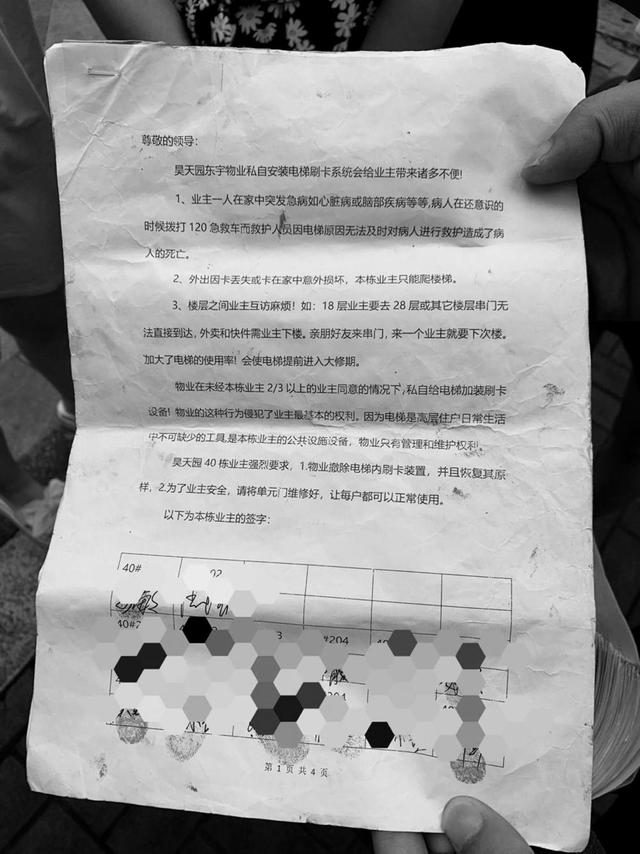 尊敬的领导：
昊天园东宇物业私自安装电梯刷卡系统会给业主带来诸多不便!
1、业主一人在家中突发急病如心脏病或脑部疾病等等,病人在还意识的
时候拨打 120 急救车而救护人员因电梯原因无法及时对病人进行救护造成了病
人的死亡。
2、外出因卡丢失或卡在家中意外损坏，本栋业主只能爬楼梯。
3、楼层之间业主互访麻烦！如：18 层业主要去 28 层或其它楼层串门无
法直接到达，外卖和快件需业主下楼。亲朋好友来串门，来一个业主就要下次楼。
加大了电梯的使用率! 会使电梯提前进入大修期。
物业在未经本栋业主 2/3 以上的业主同意的情况下,私自给电梯加装刷卡
设备! 物业的这种行为侵犯了业主最基本的权利。因为电梯是高层住户日常生活
中不可缺少的工具,是本栋业主的公共设施设备，物业只有管理和维护权利。
昊天园 40 栋业主强烈要求，1.物业撤除电梯内刷卡装置，并且恢复其原
样，2.为了业主安全，请将单元门维修好，让每户都可以正常使用。
以下为本栋业主的签字：
40#
#204
第 1 页 共 4 页